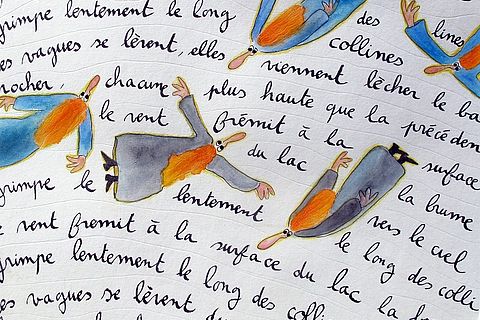 grimpe lentement le long des lines
collines
es vagues se lèvent, elles viennent lécher le ba
rocher, chacune plus haute que la précéden
le vent frémit à la surface
du lac la brume
grimpe le lentement vers le ciel
le long des colli
e vent frémit à la surface du lac la b
grimpe lentement le long des colli
es vagues se lèvent du